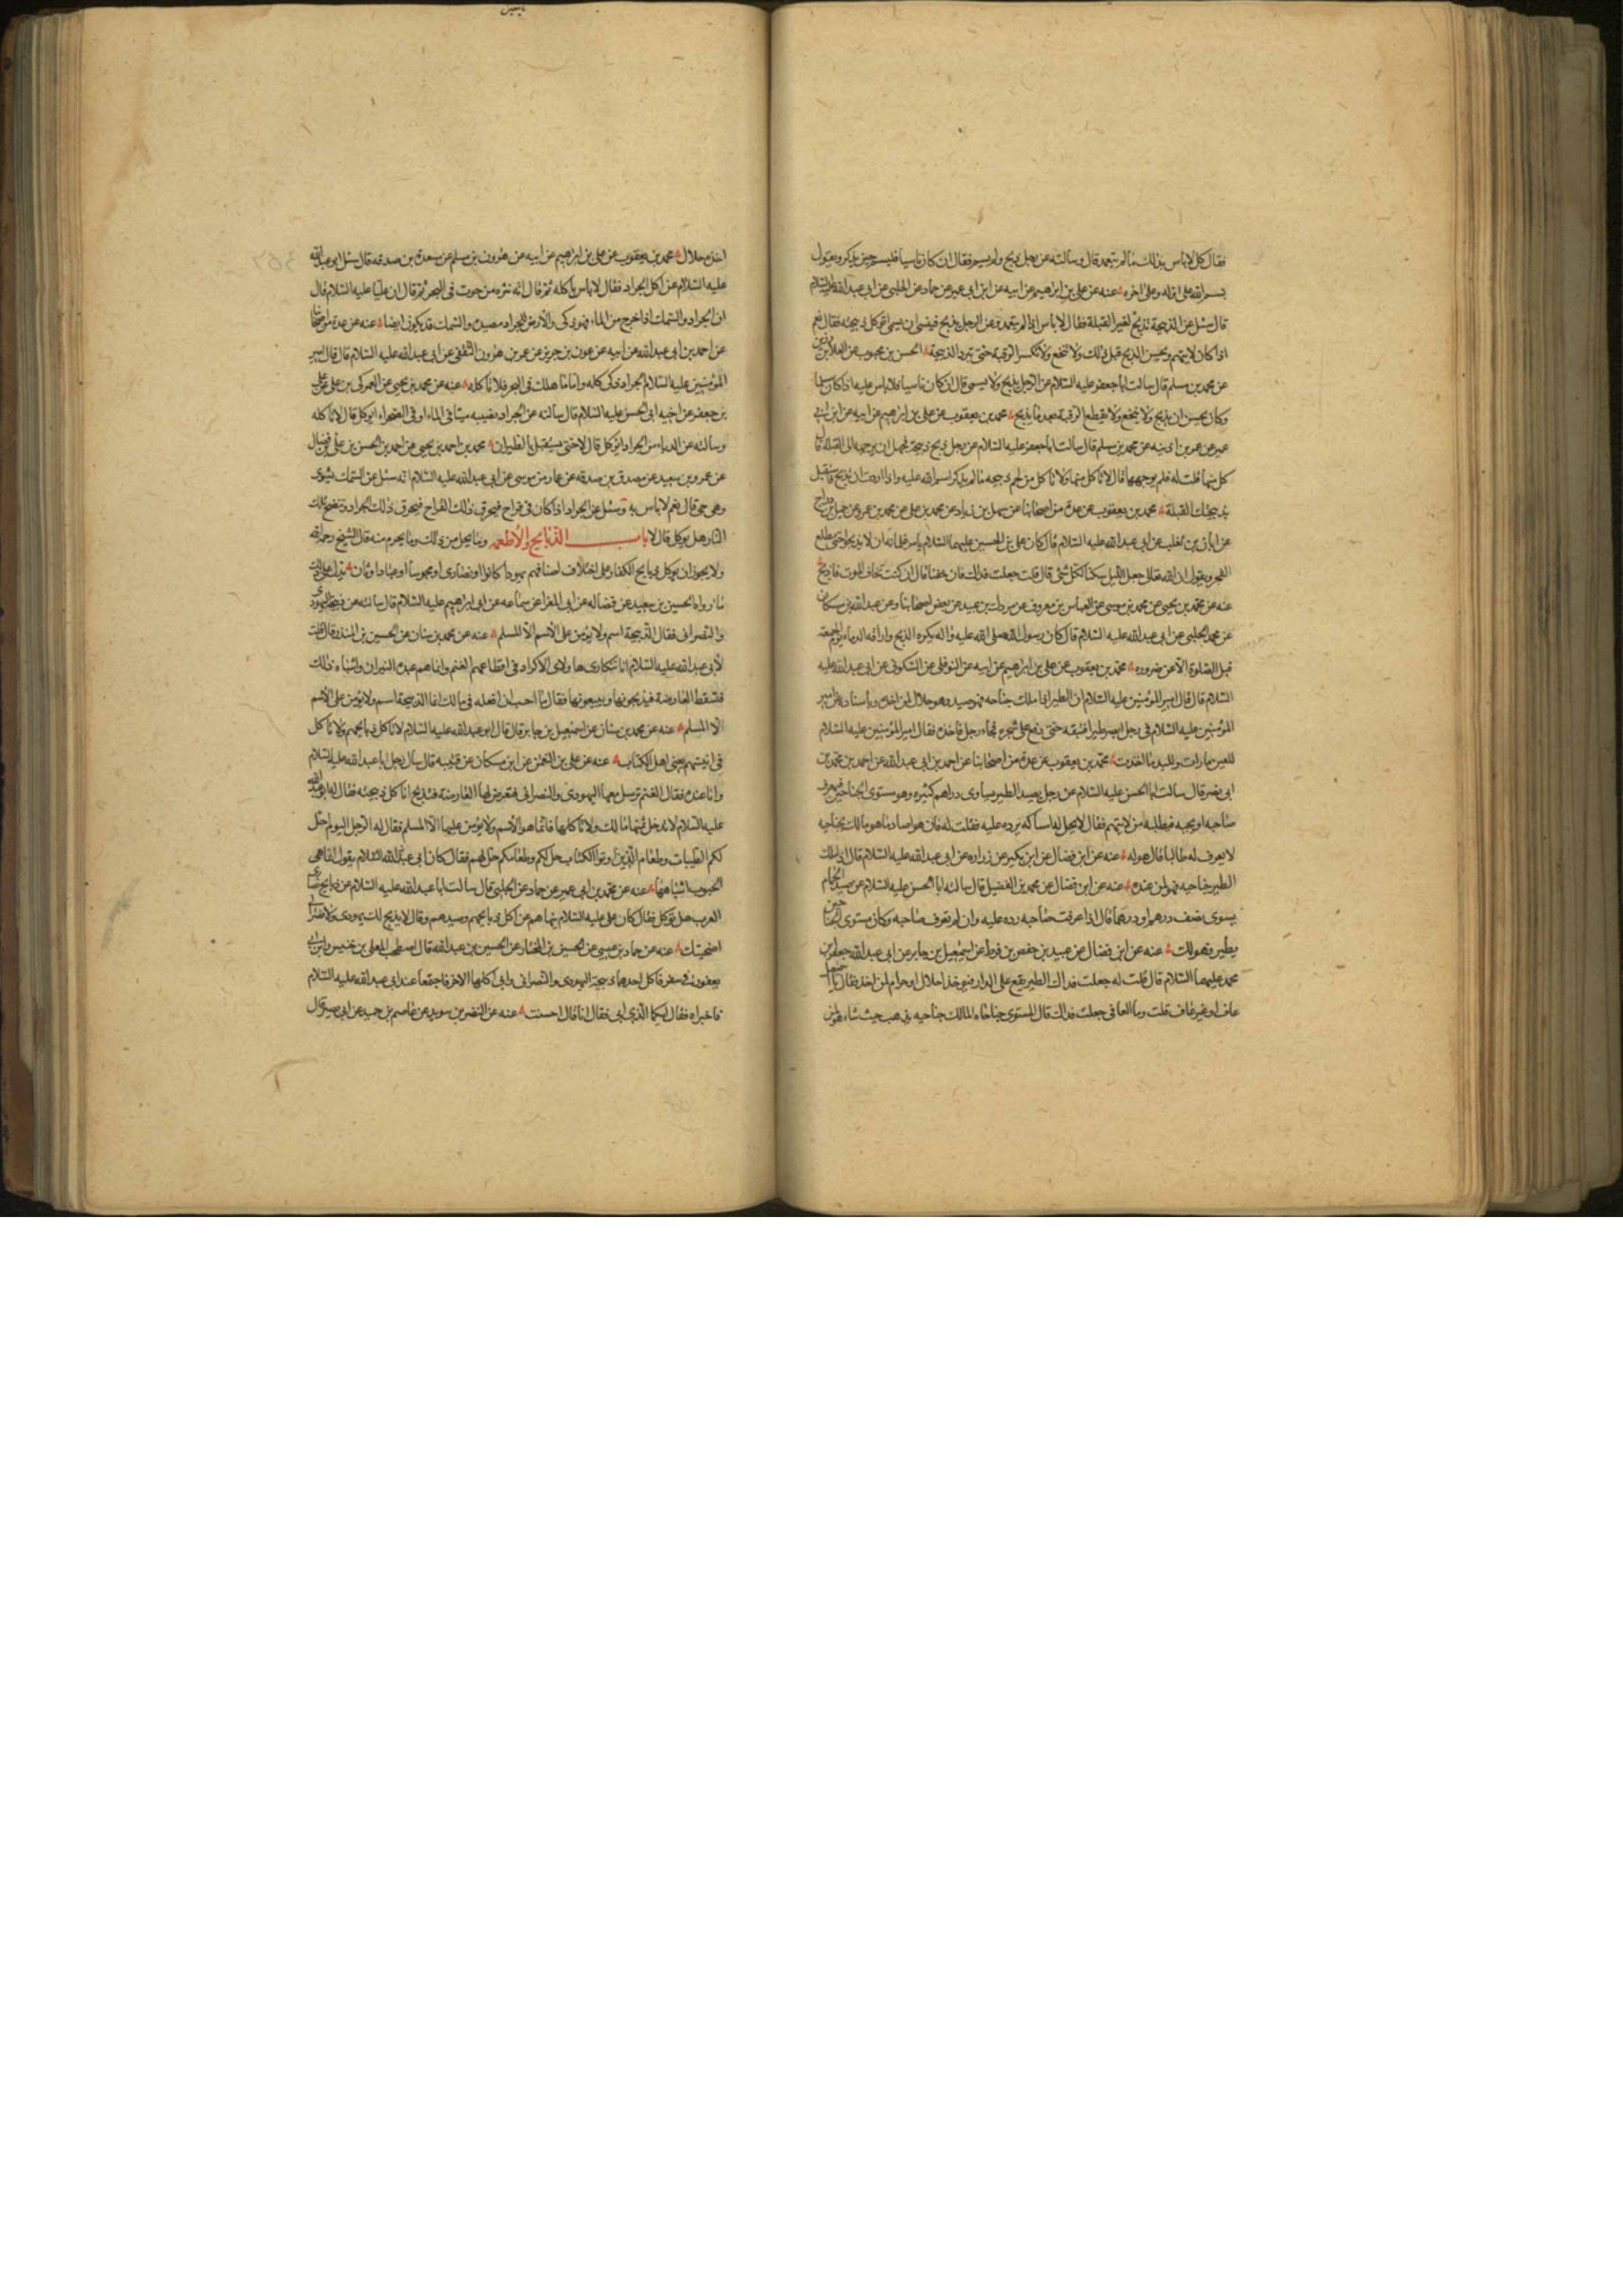 فقال كل لا باس بذلك ما لم يتعمد قال وسالته عن رجل ذبح ولم يسم فقال ان كان ناسيا فليسم حين يذكر ويقول
بسم الله على اوله وعلى اخره عنه عن علي بن ابراهيم عن ابيه عن ابن ابي عمير عن حماد عن الحلبي عن ابي عبد الله عليه السلام
قال سئل عن الذبيحة تذبح لغير القبلة فقال لا باس اذا لم يتعمد وعن الرجل يذبح فينسى ان يسمي اتوكل ذبيحته فقال نعم
اذا كان لا يتهم ويحسن الذبح قبل ذلك ولا تنخع ولا تكسر الرقبة حتى تبرد الذبيحة الحسن بن محبوب عن العلا بن رزين
عن محمد بن مسلم قال سالت ابا جعفر عليه السلام عن الرجل يذبح ولا يسمي قال ان كان ناسيا فلا باس عليه اذا كان مسلما
وكان يحسن ان يذبح ولا ينخع ولا يقطع الرقبة بعد ما يذبح محمد بن يعقوب عن علي بن ابراهيم عن ابيه عن ابن ابي
عمير عن عمر بن اذينه عن محمد بن مسلم قال سالت ابا جعفر عليه السلام عن رجل ذبح ذبيحة فجهل ان يوجهها الى القبلة قال
كل منها قلت له فلم يوجهها قال لا تاكل منها ولا تاكل من لحم ذبيحه ما لم يذكر اسم الله عليه واذا اردت ان تذبح فاستقبل
بذبيحتك القبلة محمد بن يعقوب عن عدة من اصحابنا عن سهل بن زياد عن محمد بن علي عن محمد بن عمرو عن جميل بن دراج
عن ابان بن تغلب عن ابي عبد الله عليه السلام قال كان علي بن الحسين عليهما السلام يامر غلمانه ان لا يذبحوا حتى يطلع
الفجر ويقول ان الله تعالى جعل الليل سكنا لكل شئ قال قلت جعلت فداك فان خفنا قال ان كنت تخاف الموت فاذبح
عنه عن محمد بن يحيى عن محمد بن موسى عن العباس بن معروف عن مروك بن عبيد عن بعض اصحابنا وعن عبد الله بن مسكان
عن محمد الحلبي عن ابي عبد الله عليه السلام قال كان رسول الله صلى الله عليه واله يكره الذبح واراقه الدماء يوم الجمعة
قبل الصلوة الا عن ضروره محمد بن يعقوب عن علي بن ابراهيم عن ابيه عن النوفلي عن السكوني عن ابي عبد الله عليه
السلام قال قال امير المؤمنين عليه السلام ان الطير اذا ملك جناحه فهو صيد وهو حلال لمن اخذه وباسناده عن امير
المؤمنين عليه السلام في رجل ابصر طيرا فتبعه حتى وقع على شجره فجاء رجل فاخذه فقال امير المؤمنين عليه السلام
للعين ما رات ولليد ما اخذت محمد بن يعقوب عن عدة من اصحابنا عن احمد بن ابي عبد الله عن احمد بن محمد بن
ابي نصر قال سالت ابا الحسن عليه السلام عن رجل يصيد الطير يساوى دراهم كثيره وهو مستوى الجناحين فيعرف
صاحبه او يجيه فيطلبه من لا يتهم فقال لا يحل له امساكه يرده عليه فقلت له فان هو صاد ما هو مالك بجناحيه
لا يعرف له طالبا قال هو له عنه عن ابن فضال عن ابن بكير عن زراره عن ابي عبد الله عليه السلام قال اذا ملك
الطير جناحيه فهو لمن عنده عنه عن ابن فضال عن محمد بن الفضيل قال سالت ابا الحسن عليه السلام عن صيد الحمام
يسوى نصف درهم او درهما قال اذا عرفت صاحبه رده عليه وان لم تعرف صاحبه وكان مستوى الجناحين
يطير فهو لك عنه عن ابن فضال عن عبيد بن حفص بن قرط عن اسمعيل بن جابر عن ابي عبد الله جعفر بن
محمد عليهما السلام قال قلت له جعلت فداك الطير يقع على الدار فيوخذ احلال او حرام لمن اخذه فقال يا اسمعيل
عاف او غير عاف قلت وما العافي جعلت فداك قال المستوى جناحاه المالك جناحيه يذهب حيث شاء هو لمن
اخذه حلال محمد بن يعقوب عن علي بن ابراهيم عن ابيه عن هرون بن مسلم عن مسعدة بن صدقه قال سئل ابو عبد الله
عليه السلام عن اكل الجراد فقال لا باس باكله ثم قال انه نثره من حوت في البحر ثم قال ان عليا عليه السلام قال
ان الجراد والسمك اذا خرج من الماء فهو ذكى والارض للجراد مصيده وللسمك قد يكون ايضا عنه عن عدة من اصحابنا
عن احمد بن ابي عبد الله عن ابيه عن عون بن جرير عن عمر بن هرون الثقفي عن ابي عبد الله عليه السلام قال قال امير
المؤمنين عليه السلام الجراد ذكى كله واما ما هلك في البحر فلا تاكله عنه عن محمد بن يحيى عن العمركي بن علي عن علي
بن جعفر عن اخيه ابي الحسن عليه السلام قال سالته عن الجراد يصيبه ميتا في الماء او في الصحراء ايوكل قال لا تاكله
وسالته عن الدبا من الجراد ايؤكل قال لا حتى يستقل بالطيران محمد بن احمد بن يحيى عن احمد بن الحسن بن علي بن فضال
عن عمرو بن سعيد عن مصدق بن صدقه عن عمار بن موسى عن ابي عبد الله عليه السلام انه سئل عن السمك يشوى
وهي حي قال نعم لا باس به وسئل عن الجراد اذا كان في قراح فيحرق ذلك القراح فيحرق ذلك الجراد وتنضج بتلك
النار هل يوكل قال لا باب الذبايح والاطعمه وما يحل من ذلك وما يحرم منه قال الشيخ رحمه الله
ولا يجوز ان يوكل ذبايح الكفار على اختلاف اصنافهم يهودا كانوا او نصارى او مجوسا او عباد اوثان يدل على ذلك
ما رواه الحسين بن سعيد عن فضاله عن ابي المغرا عن سماعه عن ابي ابراهيم عليه السلام قال سالته عن ذبيحة اليهودي
والنصراني فقال الذبيحة اسم ولا يؤمن على الاسم الا المسلم عنه عن محمد بن سنان عن الحسين بن المنذر قال قلت
لابي عبد الله عليه السلام انا نتكارى هاولاى الاكراد في اقطاعهم الغنم وانما هم عبده النيران واشباه ذلك
فتسقط العارضة فيذبحونها ويبيعونها فقال ما احب ان تفعله في مالك انما الذبيحة اسم ولا يؤمن على الاسم
الا المسلم عنه عن محمد بن سنان عن اسمعيل بن جابر قال قال ابو عبد الله عليه السلام لا تاكل ذبايحهم ولا تاكل
في انيتهم يعني اهل الكتاب عنه عن علي بن النعمن عن ابن مسكان عن قتيبه قال سال رجل ابا عبد الله عليه السلام
وانا عنده فقال الغنم ترسل معها اليهودى والنصراني فتعرض لها العارضة فتذبح اناكل ذبيحته فقال له ابو عبد الله
عليه السلام لا تدخل ثمنها مالك ولا تاكلها فانما هو الاسم ولا يؤمن عليها الا المسلم فقال له الرجل اليوم احل
لكم الطيبات وطعام الذين اوتوا الكتاب حل لكم وطعامكم حل لهم فقال كان ابي عليه السلام يقول انما هي
الحبوب واشباهها عنه عن محمد بن ابي عمير عن حماد عن الحلبي قال سالت ابا عبد الله عليه السلام عن ذبايح نصارى
العرب هل توكل فقال كان علي عليه السلام ينهاهم عن اكل ذبايحهم وصيدهم وقال لا يذبح لك يهودى ولا نصراني
اضحيتك عنه عن حماد بن عيسى عن الحسين بن المختار عن الحسين بن عبد الله قال اصطحب المعلى بن خنيس وابن ابي
يعفور في سفر فاكل احدهما ذبيحة اليهودى والنصراني وابى اكلها الاخر فاجتمعا عند ابي عبد الله عليه السلام
فاخبراه فقال ايكما الذي ابى فقال انا قال احسنت عنه عن النضر بن سويد عن عاصم بن حميد عن ابي بصير قال